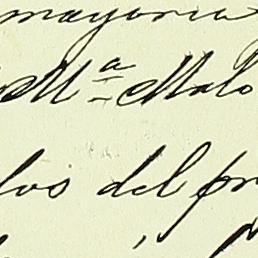 mayoria
Mª Malo
los del pr